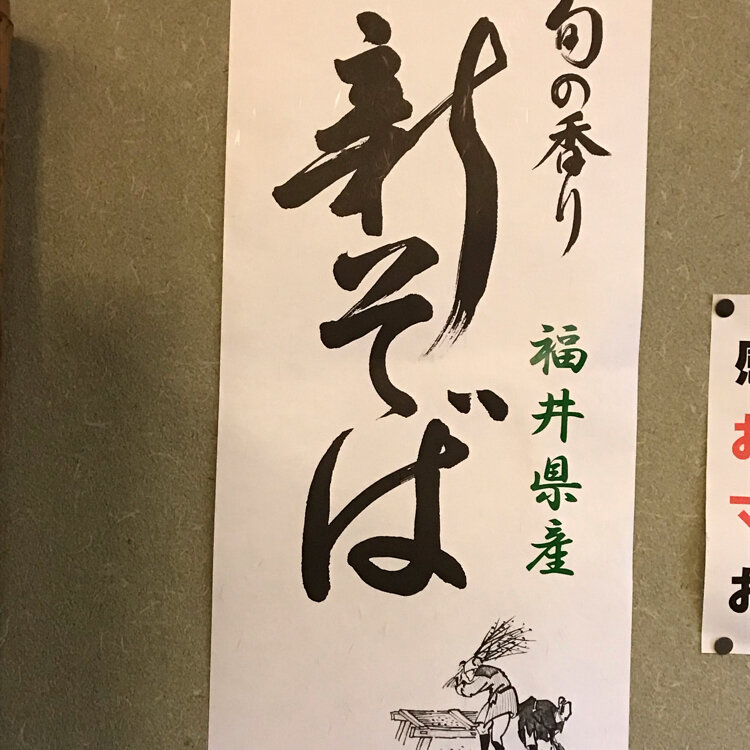 旬の香り
新そば
福井県産
お
お